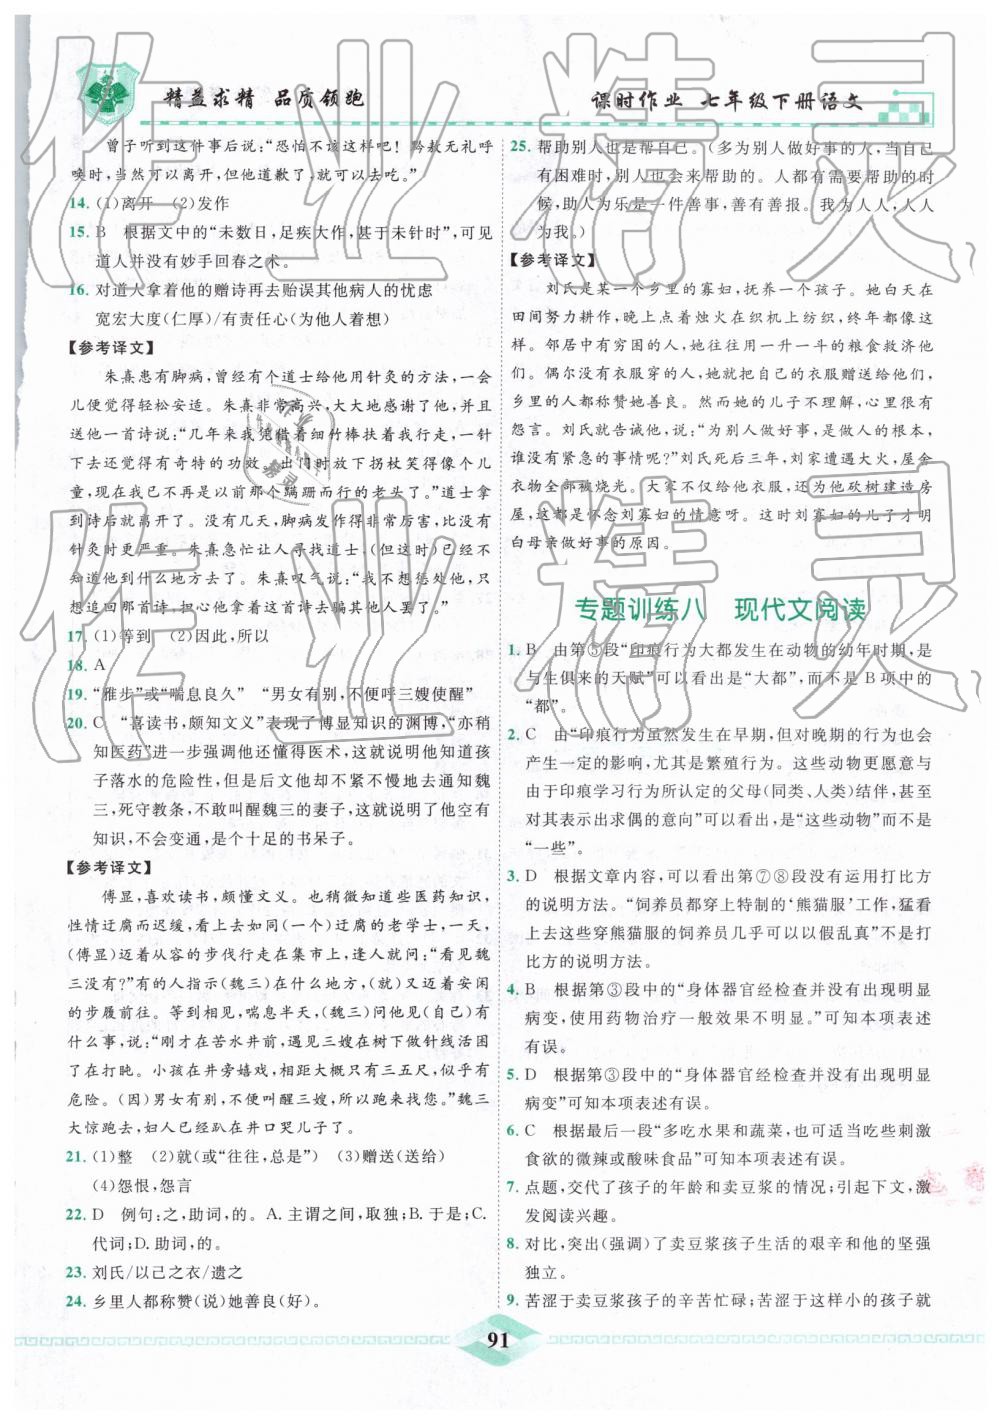 精益求精 品质领跑
课时作业 七年级下册语文
曾子听到这件事后说:“恐怕不该这样吧!黔敖无礼呼
唤时,当然可以离开,但他道歉了,就可以去吃。”
14. (1)离开 (2)发作
15. B 根据文中的“未数日,足疾大作,甚于未针时”,可见
道人并没有妙手回春之术。
16. 对道人拿着他的赠诗再去贻误其他病人的忧虑
宽宏大度(仁厚)/有责任心(为他人着想)
【参考译文】
朱熹患有脚病,曾经有个道士给他用针灸的方法,一会
儿便觉得轻松安适。朱熹非常高兴,大大地感谢了他,并且
送他一首诗说:“几年来我凭借着细竹棒扶着我行走,一针
下去还觉得有奇特的功效。出门时放下拐杖笑得像个儿
童,现在我已不再是以前的那个蹒跚而行的老头了。”道士拿
到诗后就离开了。没有几天,脚病发作得非常厉害,比没有
针灸时更严重。朱熹急忙让人寻找道士,(但这时)已经不
知道他到什么地方去了。朱熹叹气说:“我不是想惩罚他,只
想追回那首诗,担心他拿着这首诗去骗其他人罢了。”
17. (1)等到 (2)因此,所以
18. A
19. “雅步”或“喘息良久” “男女有别,不便呼三嫂使醒”
20. C “喜读书,颇知文义”表现了傅显知识的渊博,“亦稍
知医药”进一步强调他还懂得医术,这就说明他知道孩
子落水的危险性,但是后文他却不紧不慢地去通知魏
三,死守教条,不敢叫醒魏三的妻子,充分说明了他空有
知识,不会变通,是个十足的书呆子。
【参考译文】
傅显,喜欢读书,颇懂文义。也稍微知道些医药知识,
性情迂腐而迟缓,看上去如同(一个)迂腐的老学士,一天,
(傅显)迈着从容的步伐行走在集市上,逢人就问:“看见魏
三没有?”有的人指示(魏三)在什么地方,(就)又迈着安闲
的步履前往。等到相见,喘息半天,(魏三)问他见(自己)有
什么事,说:“刚才在苦水井前,遇见三嫂在树下做针线活困
了在打盹。小孩在井旁嬉戏,相距大概只有三五尺,似乎有
危险。(因)男女有别,不便叫醒三嫂,所以跑来找您。”魏三
大惊跑去,妇人已经趴在井口哭儿子了。
21. (1)整 (2)就(或“往往,总是”) (3)赠送(送给)
(4)怨恨,怨言
22. D 例句:之,助词,的。A.主谓之间,取独;B.于是;C.
代词;D.助词,的。
23. 刘氏/以己之衣/遗之
24. 乡里人都称赞(说)她善良(好)。
25. 帮助别人也是帮自己。(多为别人做好事的人,当自己
有困难时,别人也会来帮助的。人都有需要帮助的时
候,助人为乐是一件善事,善有善报。我为人人,人人
为我。)
【参考译文】
刘氏是某一个乡里的寡妇,抚养一个孩子。她白天在
田间努力耕作,晚上点着烛火在织机上纺织,终年都像这
样。邻居中有穷困的人,她就用一升一斗的粮食救济他
们。偶尔没有衣服穿的人,她就把自己的衣服赠送给他们,
乡里的人都称赞她善良。然而她的儿子不理解,心里很有
怨言。刘氏就告诫他,说:“为别人做好事,是做人的根本,
谁没有紧急的事情呢?”刘氏死后三年,刘家遭遇大火,屋舍
衣物全部被烧光。大家不仅给他衣服,还为他砍树建造房
屋,这都是怀念刘寡妇的情意呀。这时刘寡妇的儿子才明
白母亲做好事的原因。
专题训练八 现代文阅读
1. B 由第⑤段“印痕行为大都发生在动物的幼年时期,是
与生俱来的天赋”可以看出是“大都”,而不是B项中的
“都”。
2. C 由“印痕行为虽然发生在早期,但对晚期的行为也会
产生一定的影响,尤其是繁殖行为。这些动物更愿意与
由于印痕学习行为所认定的父母(同类、人类)结伴,甚至
对其表示出求偶的意向”可以看出,是“这些动物”而不是
“一些”。
3. D 根据文章内容,可以看出第⑦⑧段没有运用打比方
的说明方法。“饲养员都穿上特制的‘熊猫服’工作,猛看
上去这些穿熊猫服的饲养员几乎可以以假乱真”不是打
比方的说明方法。
4. B 根据第③段中的“身体器官经检查并没有出现明显
病变,使用药物治疗一般效果不明显。”可知本项表述
有误。
5. D 根据第③段中的“身体器官经检查并没有出现明显
病变”可知本项表述有误。
6. C 根据最后一段“多吃水果和蔬菜,也可适当吃些刺激
食欲的微辣或酸味食品”可知本项表述有误。
7. 点题,交代了孩子的年龄和卖豆浆的情况;引起下文,激
发阅读兴趣。
8. 对比,突出(强调)了卖豆浆孩子生活的艰辛和他的坚强
独立。
9. 苦涩于卖豆浆孩子的辛苦忙碌;苦涩于这样小的孩子就
91
作业精灵
作业精灵
作业精灵